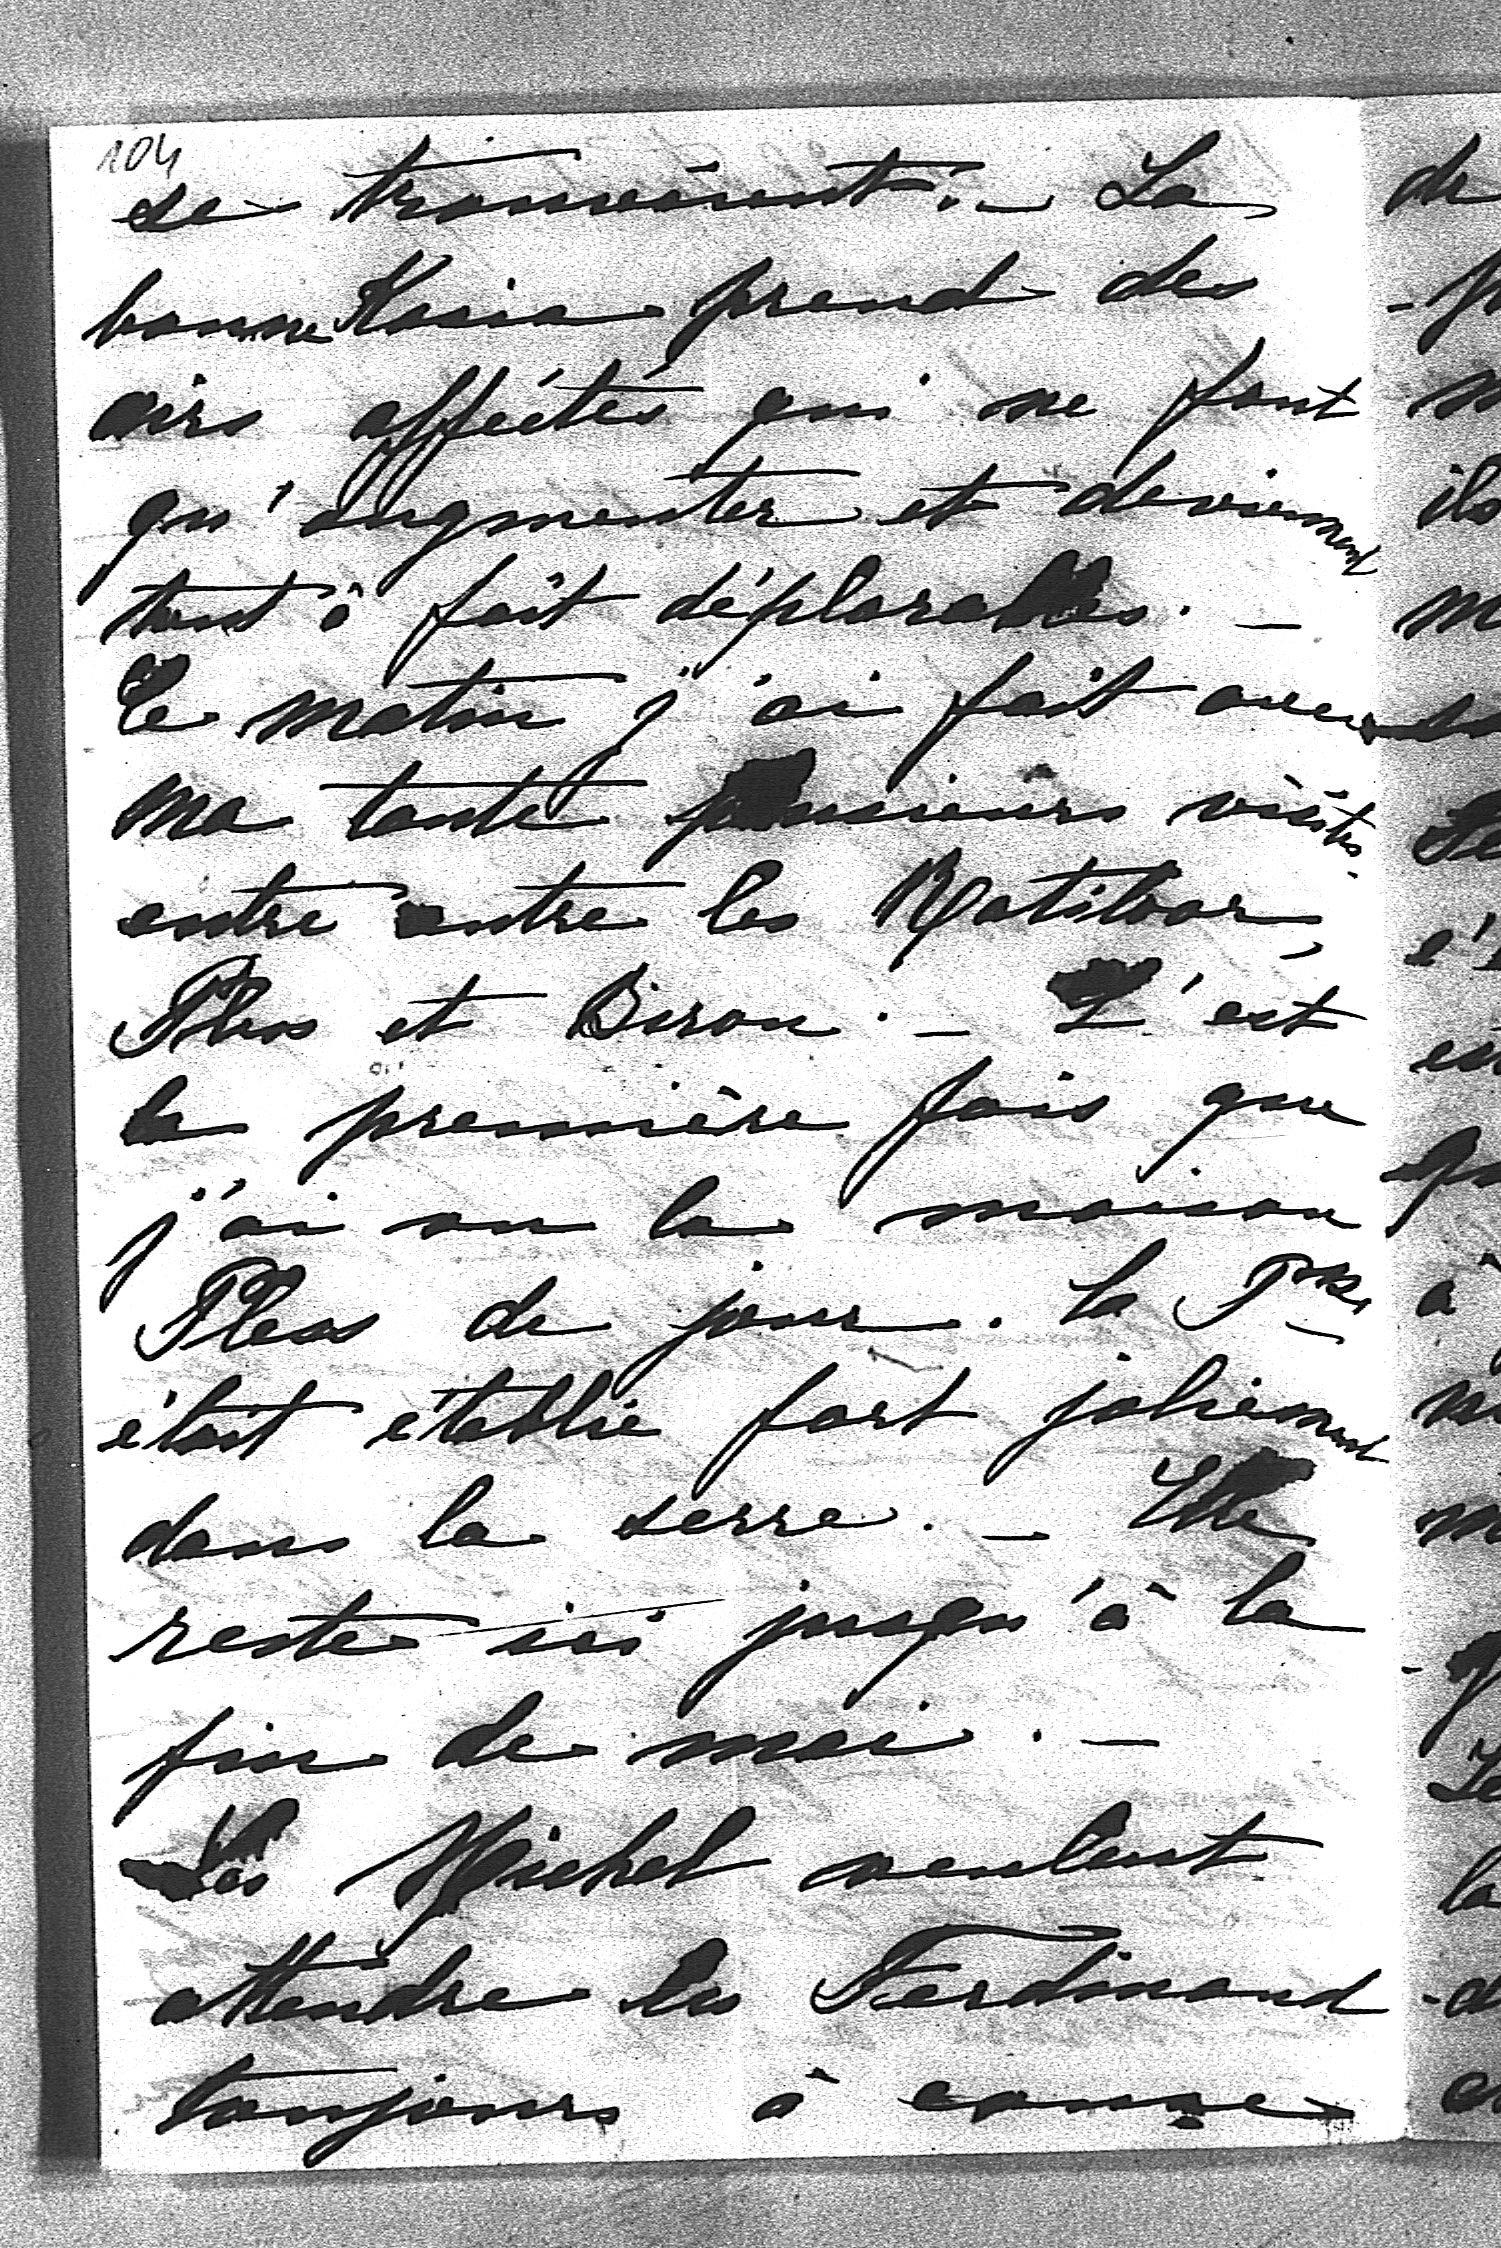 104
se trouvèrent. – La
bonne Kasia prend des
airs affectés qui ne font
qu'augmenter et deviennent
tout à fait déplorables. –
Le matin j'ai fait avec
ma tante plusieurs visites
entre autre les Ratibor,
Pless et Biron. – C'est
la première fois que
j'ai vu la maison
Pless de jour. La Psse
était établie fort joliement
dans la serre. – Elle
reste ici jusqu'à la
fin de mai. –
Les Michel veulent
attendre les Ferdinand
toujours à cause